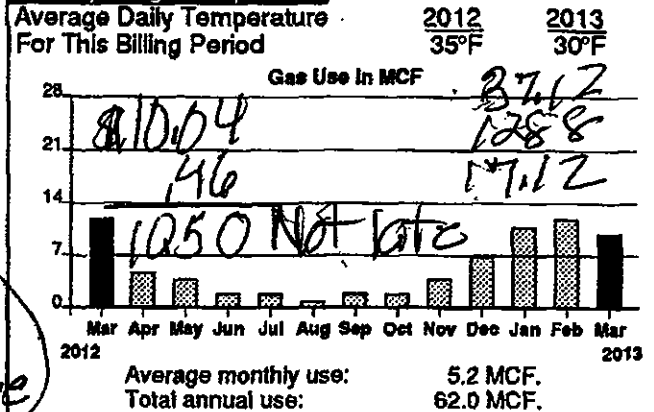 Average Daily Temperature 2012 2013
For This Billing Period 35°F 30°F
Gas Use in MCF
28
37.12
810.04
1288
21
.46
17.12
14
1050 Not late
7
0
Mar Apr May Jun Jul Aug Sep Oct Nov Dec Jan Feb Mar
2012 2013
Average monthly use: 5.2 MCF.
Total annual use: 62.0 MCF.